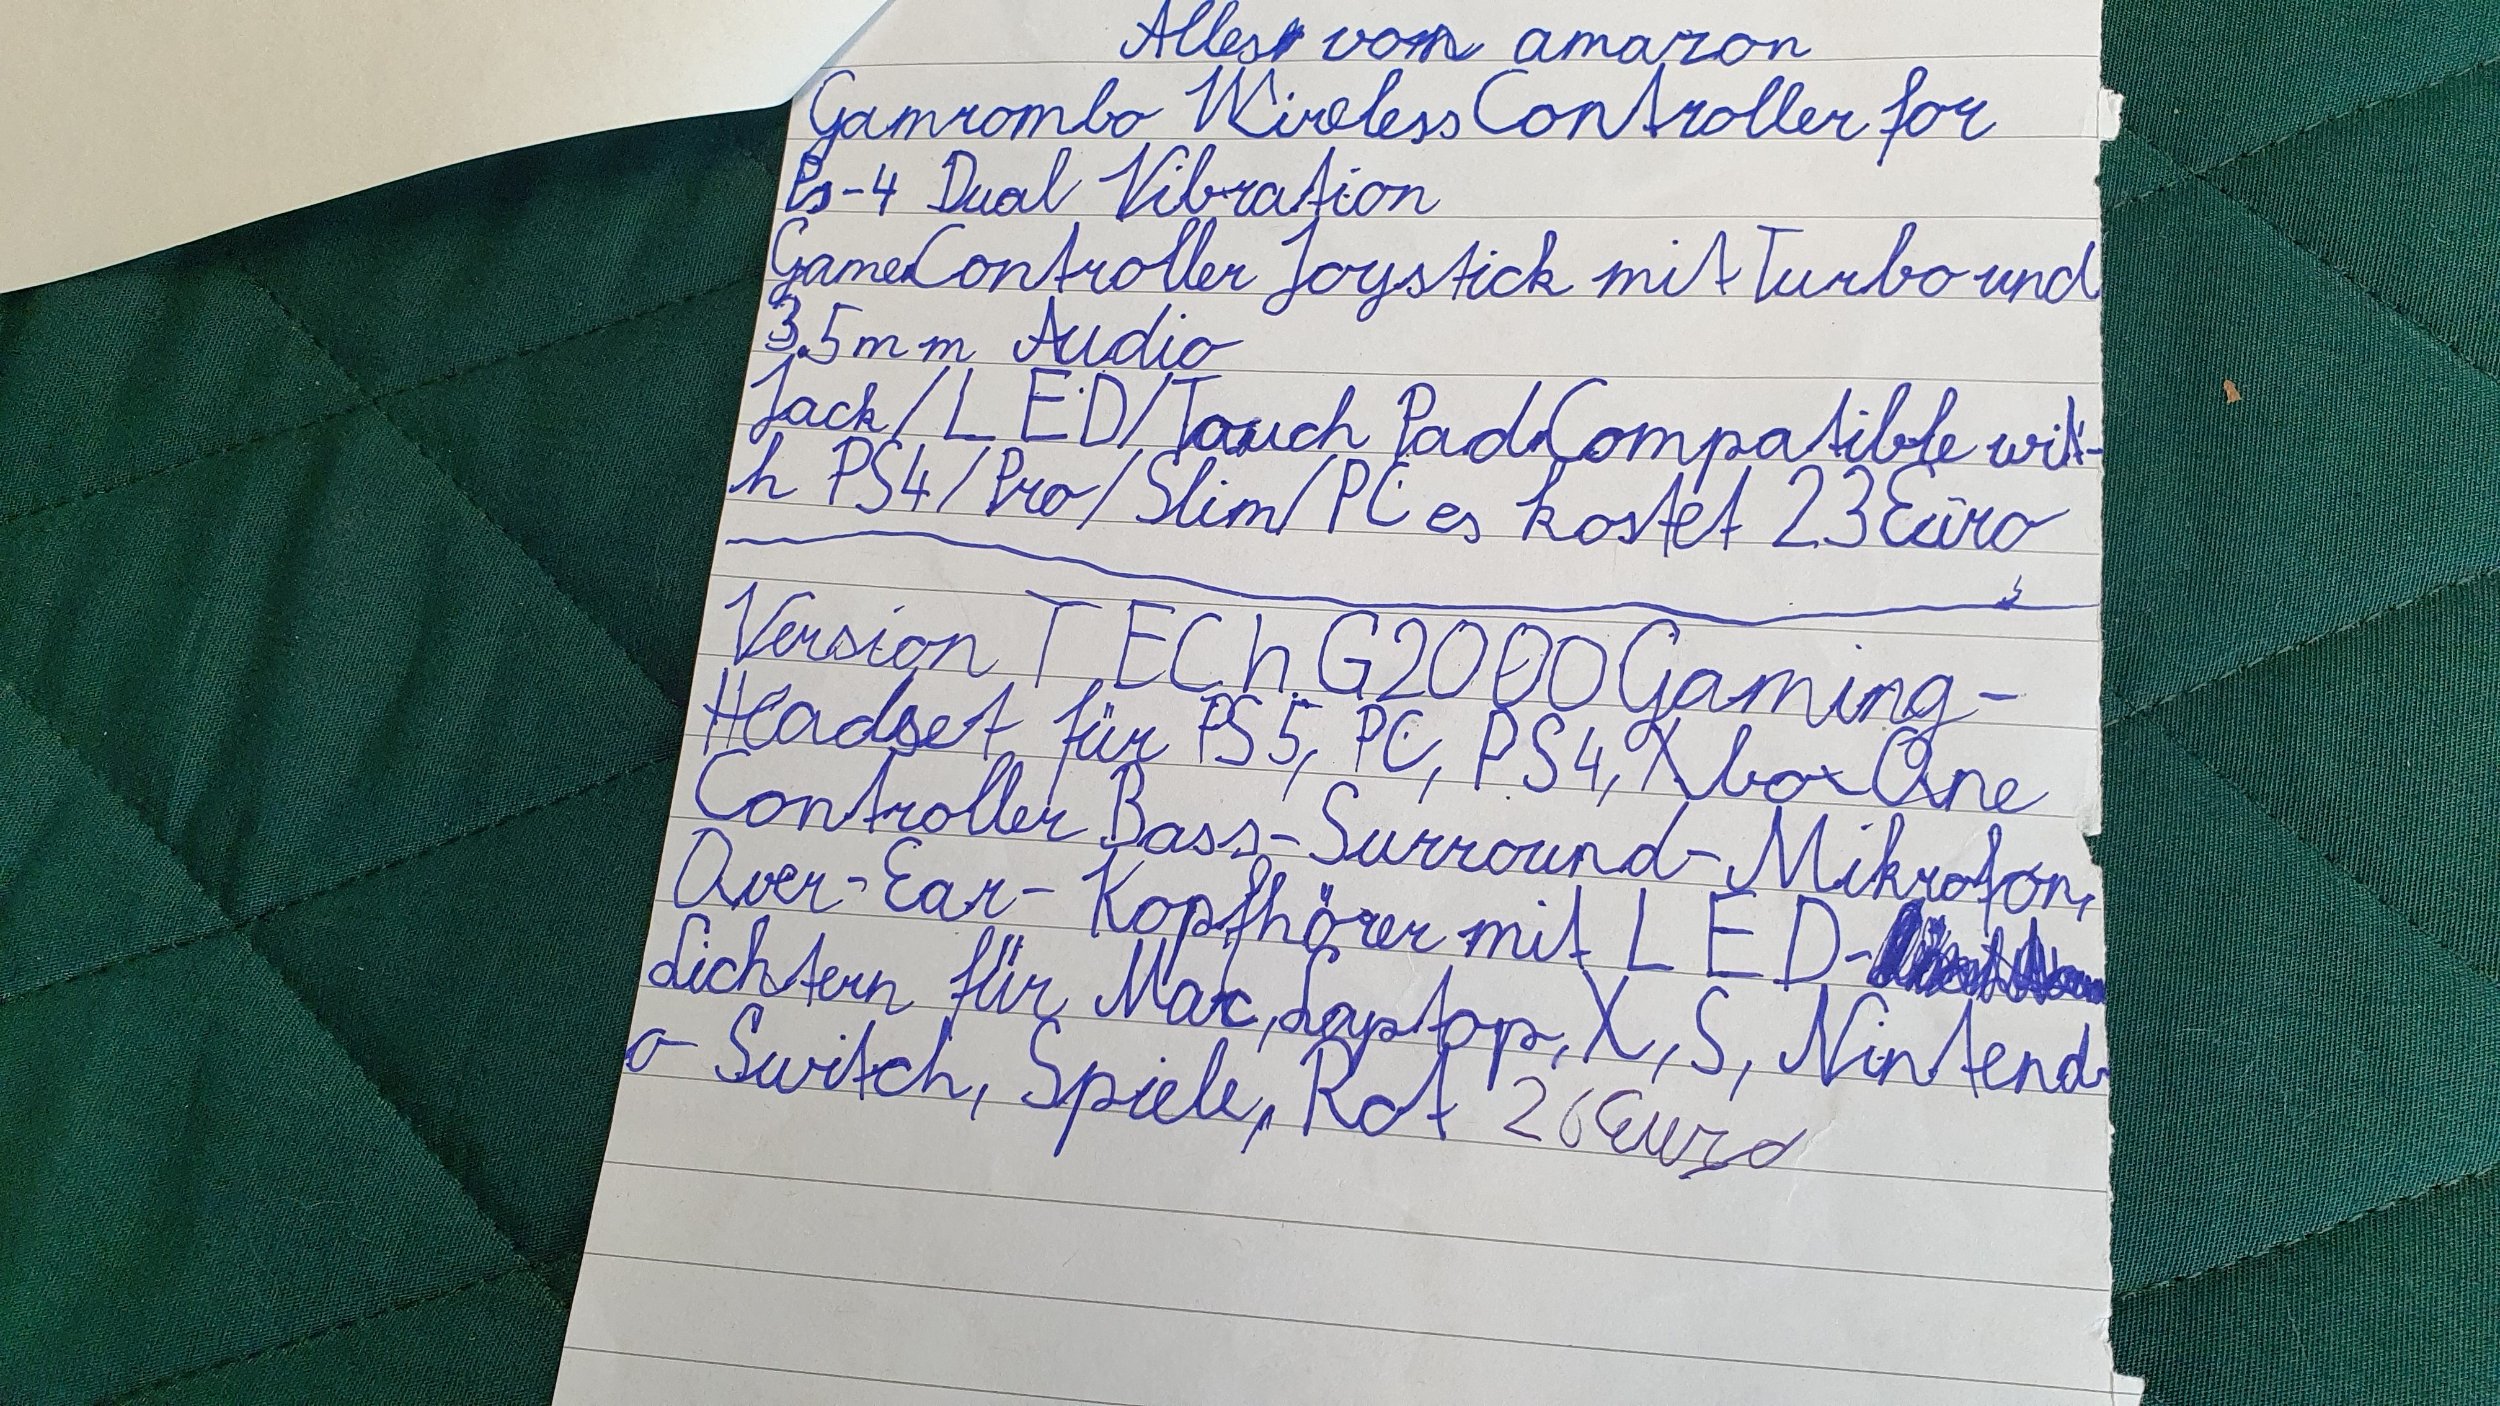 Alles von amazon
Gamrombo Wireless Controller for
Ps-4 Dual Vibration
Game Controller Joystick mit Turbo und
3.5mm Audio
Jack/LED/Touch Pad Compatible wit-
h PS4/Pro/Slim/PC es kostet 23 Euro
Version TECh G2000 Gaming-
Headset für PS5, PC, PS4, Xbox One
Controller Bass-Surround-Mikrofon,
Over-Ear-Kopfhörer mit LED-
Lichtern für Mac, Laptop, X, S, Nintend-
o Switch, Spiele, Rot 26 Euro